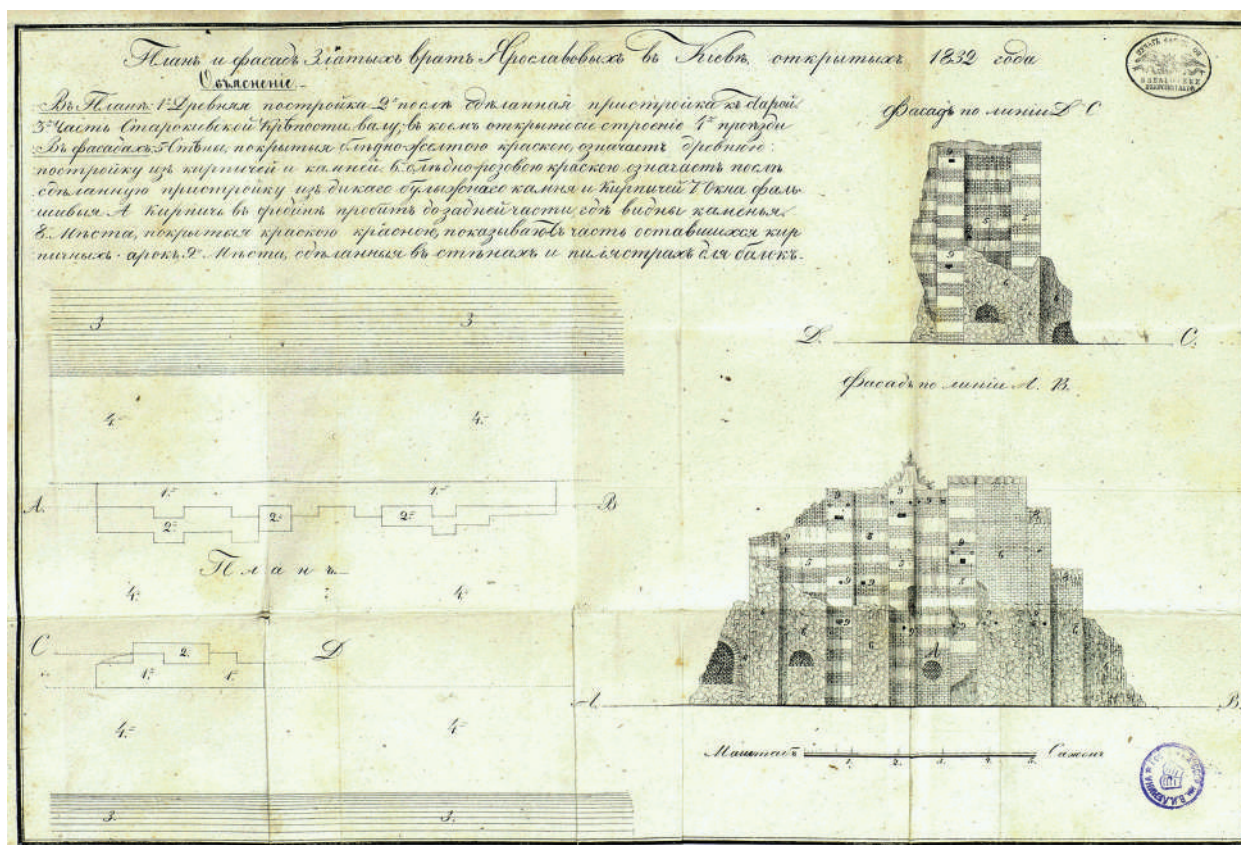 Планъ и фасадъ Златыхъ вратъ Ярославовыхъ въ Кіевѣ, открытыхъ 1832 года
Объясненіе
Въ Планѣ: 1е Древняя постройка 2е послѣ сдѣланная пристройка къ старой
3е Часть Старокіевской Крѣпости валу, въ коемъ открыто сіе строеніе 4е проѣзди
Въ фасадахъ: 5 Стѣны, покрытыя блѣдно-желтою краскою, означаетъ древнюю
постройку изъ кирпичей и камней. 6. блѣдно-розовою краскою означаетъ послѣ
сдѣланную пристройку изъ дикаго булыжнаго камня и кирпичей 7. Окна фаль-
шивыя А Кирпичъ въ срединѣ пробитъ до задней части, гдѣ видны каменья.
8. Мѣста, покрытыя краскою красною, показываютъ часть оставшихся кир
пичныхъ арокъ. 9е Мѣста, сдѣланныя въ стѣнахъ и пилястрахъ для балокъ.
3 3
4. 4.
A. 1. 1. B
2. 2. 2.
Планъ
4. 4.
C 2. D
1. 1.
4. 4.
3. 3.
Фасадъ по линіи D C
9
5 5
9
6 6
D. C.
Фасадъ по линіи A. B.
9 9 9 9
8
9 6
5 5
9 9 5
9 9
6 6 6
A
A. B.
Масштабъ 1. 2. 3. 4. 5. Сажень